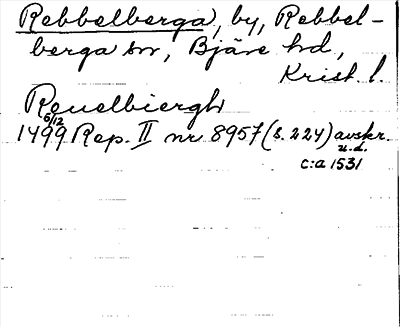 Rebbelberga, by, Rebbel-
berga sn, Bjäre hd,
Krist. l.
Rouelbiergh
6/12
1499 Rep. II nr 8957 (s. 224) avskr.
u.d.
c:a 1531